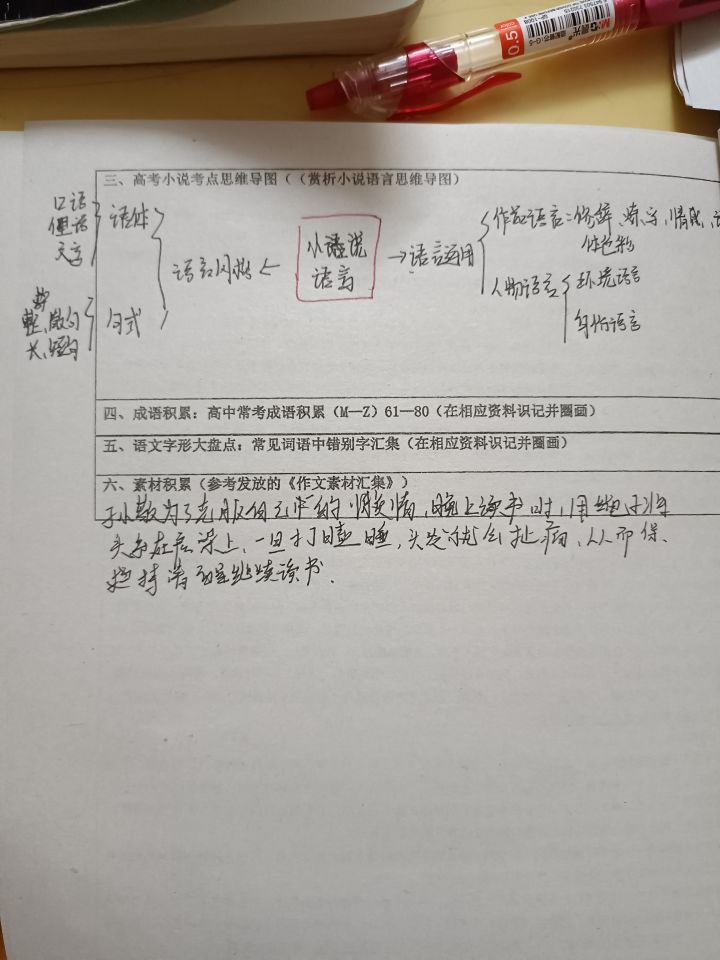 0.5
M&G 晨光
三、高考小说考点思维导图（（赏析小说语言思维导图）
口语
俚语
文言
语体
整、散句
长、短句
句式
语言风格
小说
语言
语言运用
作品语言：修辞、炼字、情感、
人物语言
环境语言
身份语言
四、成语积累：高中常考成语积累（M—Z）61—80（在相应资料识记并圈画）
五、语文字形大盘点：常见词语中错别字汇集（在相应资料识记并圈画）
六、素材积累（参考发放的《作文素材汇集》）
孙敬为了克服自己的惰情，晚上读书时，用绳子将
头系在房梁上，一旦打瞌睡，头发就会扯痛，从而保
持清醒继续读书.